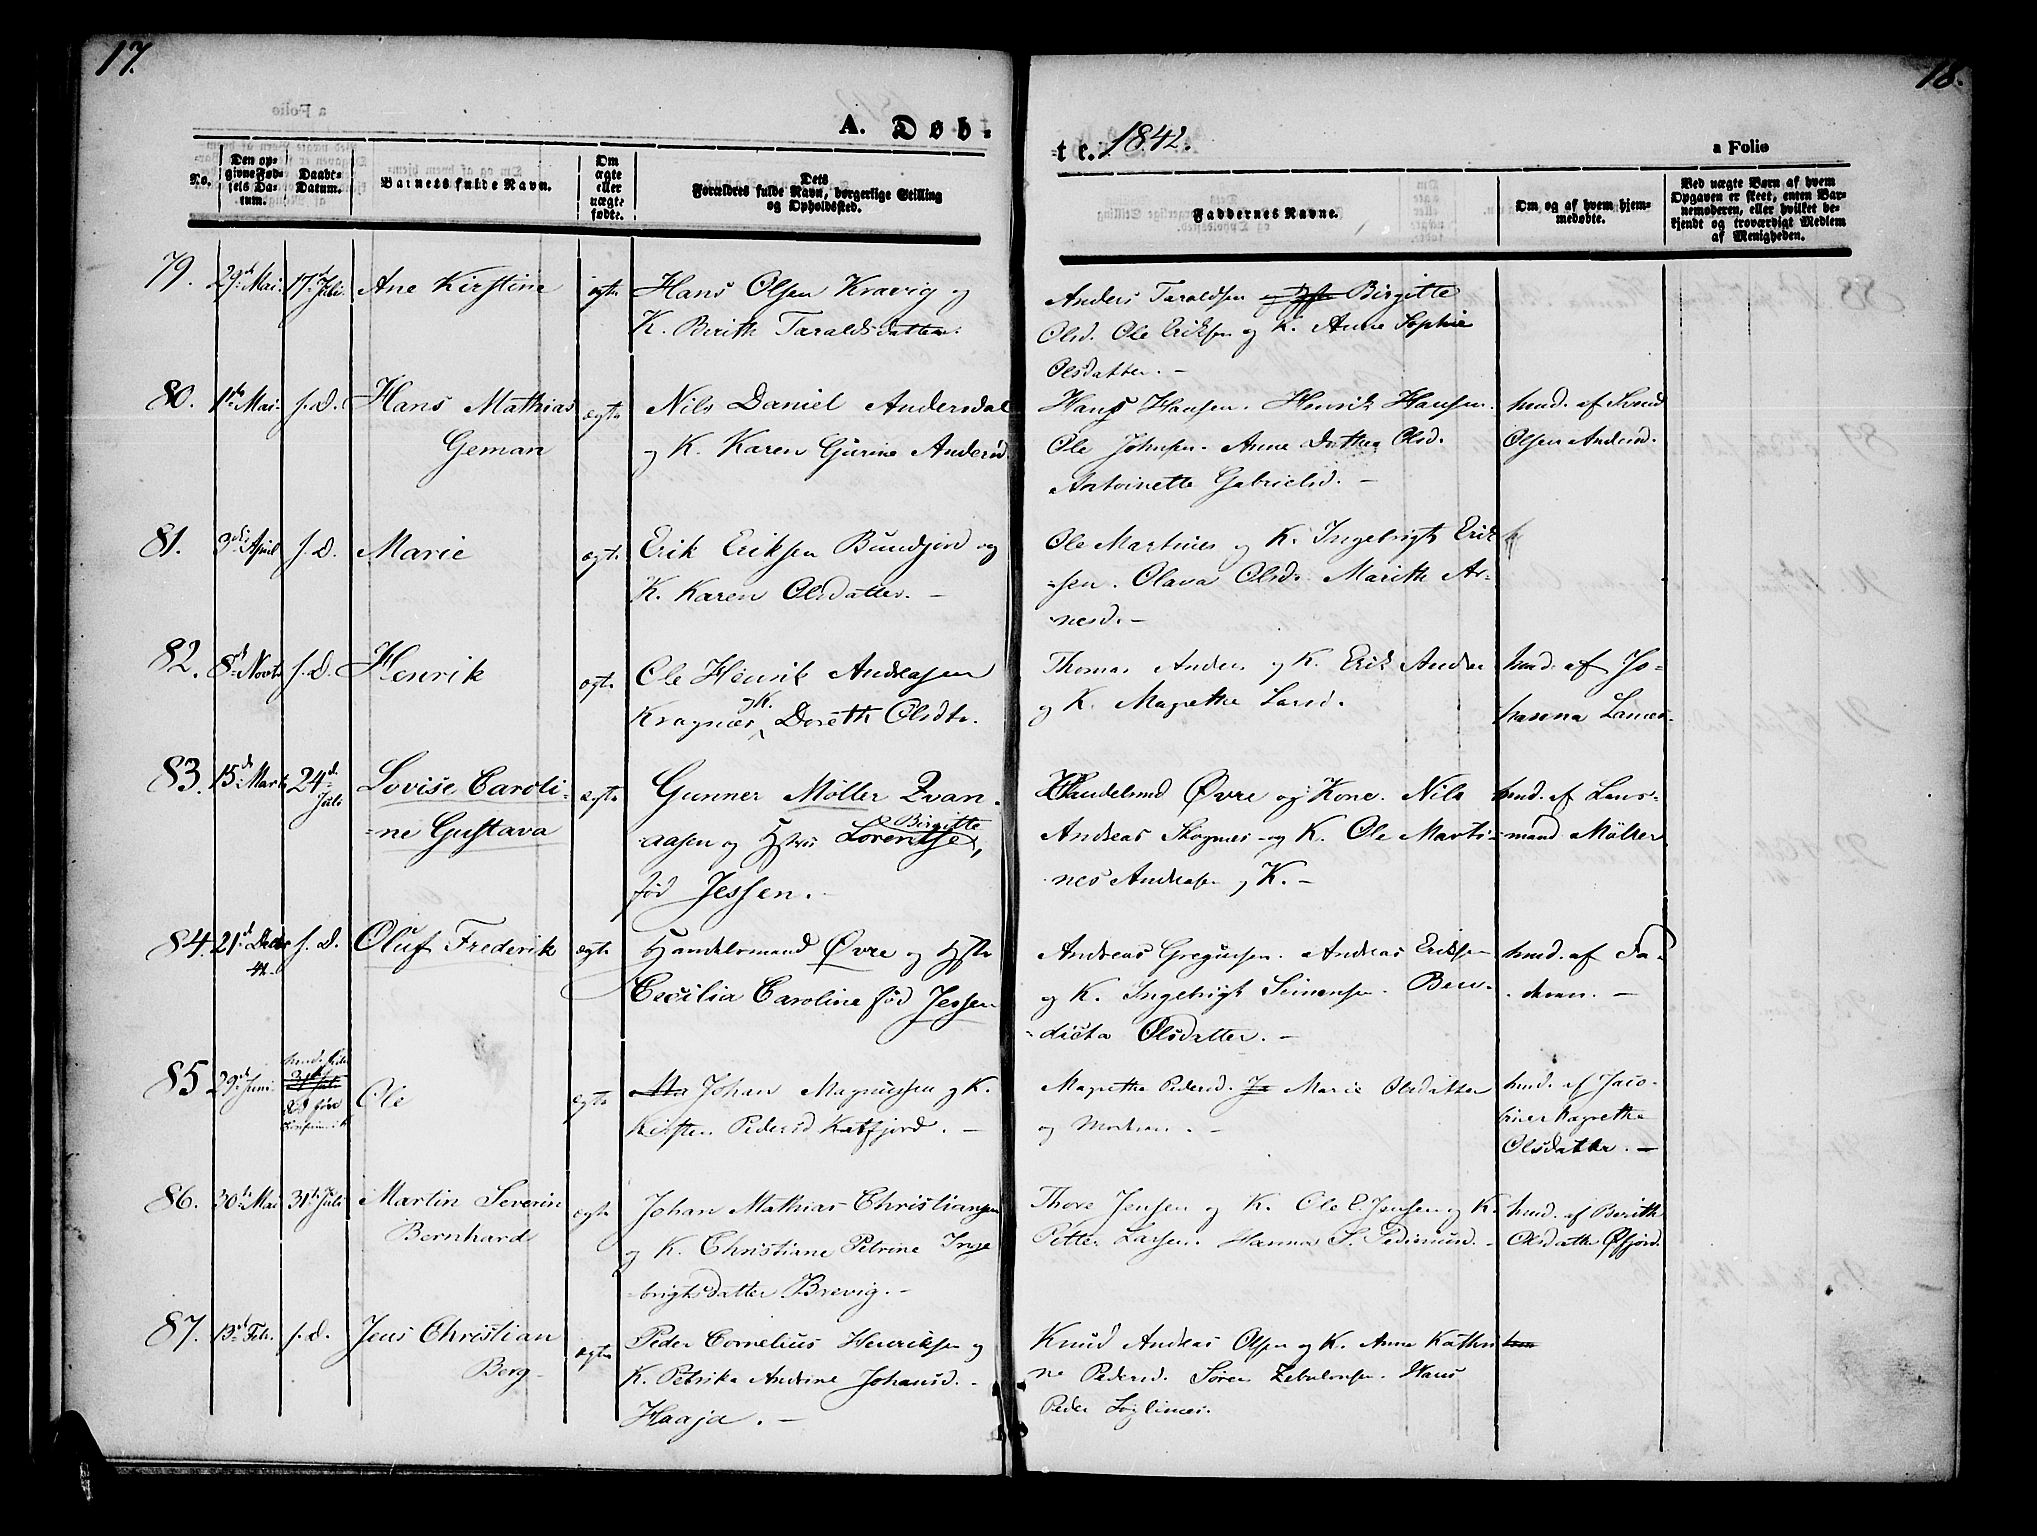 17.
18.
A. Døb-
te. 1842.
a Folio
No.
Den op-
givne Fød-
sels Da-
tum.
Daabs-
Datum.
Barnets fulde Navn.
Om
ægte
eller
uægte
fødte.
Dets
Forældres fulde Navn, borgerlige Stilling
og Opholdssted.
Faddernes Navne.
Om og af hvem hjem-
medøbte.
Ved uægte Børn af hvem
Opgaven er skeet, enten Bar-
nemoderen, eller hvilket be-
kjendt og troværdigt Medlem
af Menigheden.
79. 29d Mai. 17d Juli. Ane Kirstine ægte Hans Olsen Kravig og
K. Berith Taraldsdatter.
Anders Taraldsen Birgitte
Olsd. Ole Eriksen og K. Anne Sophie
Olsdatter. –
80. 1ste Mai. s.d. Hans Mathias
Geman
ægte Nils Daniel Andersdal
og K. Karen Gurine Andersd.
Hans Hansen. Henrik Hansen.
Ole Johnsen. Anne Dorthea Olsd.
Antoinette Gabrielsd. –
hmd. af Svend
Olsen Andersd.
81. 3die April s.d. Marie ægte Erik Eriksen Bundjord og
K. Karen Olsdatter. –
Ole Martinus og K. Ingebrigt Erik
-sen. Olava Olsd. Marith Ar-
nesd. –
82. 8d Novb. s.d. Henrik ægte Ole Henrik Andreasen
Kragnæs og K. Doreth Olsdtr.
Thomas Anders og K. Erik Anders
og K. Magrethe Larsd.
hmd. af Jo-
hanna Lanes.
83. 15d Marts 24d
Juli
Lovise Caroli-
-ne Gustava
ægte Gunner Møller Zvan-
aasen og Hstru Lorentse Birgitte,
fød Jessen. –
Handelsmd Øvre og Kone. Nils
Andreas Skognæs og K. Ole Marti-
nes Andreasen og K. –
hmd. af Lens-
mand Møller.
84. 21d Decbr
41.
s.d. Oluf Frederik ægte Handelsmand Øvre og Hstr
Cecilia Caroline fød Jessen
Andreas Gregusen. Andreas Eriksen
og K. Ingebrigt Simonsen. Ben-
-dicta Olsdatter. –
hmd. af Fa-
deren. –
85 29d Juni. Ole ægte Johan Magnussen og K.
Kirsten Pedersd Katfjord. –
Magrethe Pedersd. Marie Olsdatter
og Moderen. –
hmd. af Jaco-
bine Magrethe
Olsdatter. –
86. 30te Mai 31te Juli Martin Severin
Bernhard
ægte Johan Mathias Christiansen
og K. Christiane Petrine Inge
brigtsdatter Brevig. –
Thore Jensen og K. Ole E. Jensen og K.
Petter Larsen. Hanna S. Pedersd. –
hmd. af Berith
Olsdatter Øfjord.
87. 13d Febr. s.d. Jens Christian
Berg
ægte Peder Cornelius Henriksen og
K. Petrika Andrine Johansd. –
Haaja. –
Knud Andreas Olsen og K. Anne Kathri
ne Pedersd. Søren Zebulonsen. Hans
Peder